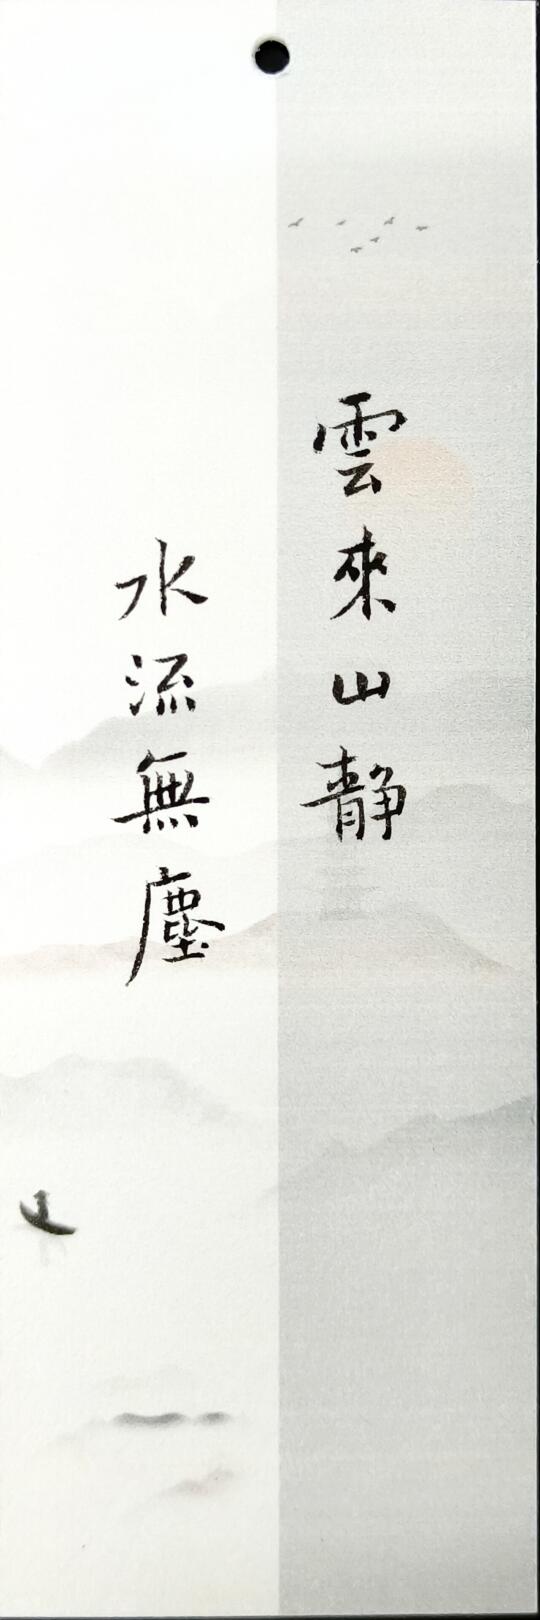 雲來山静
水流無塵